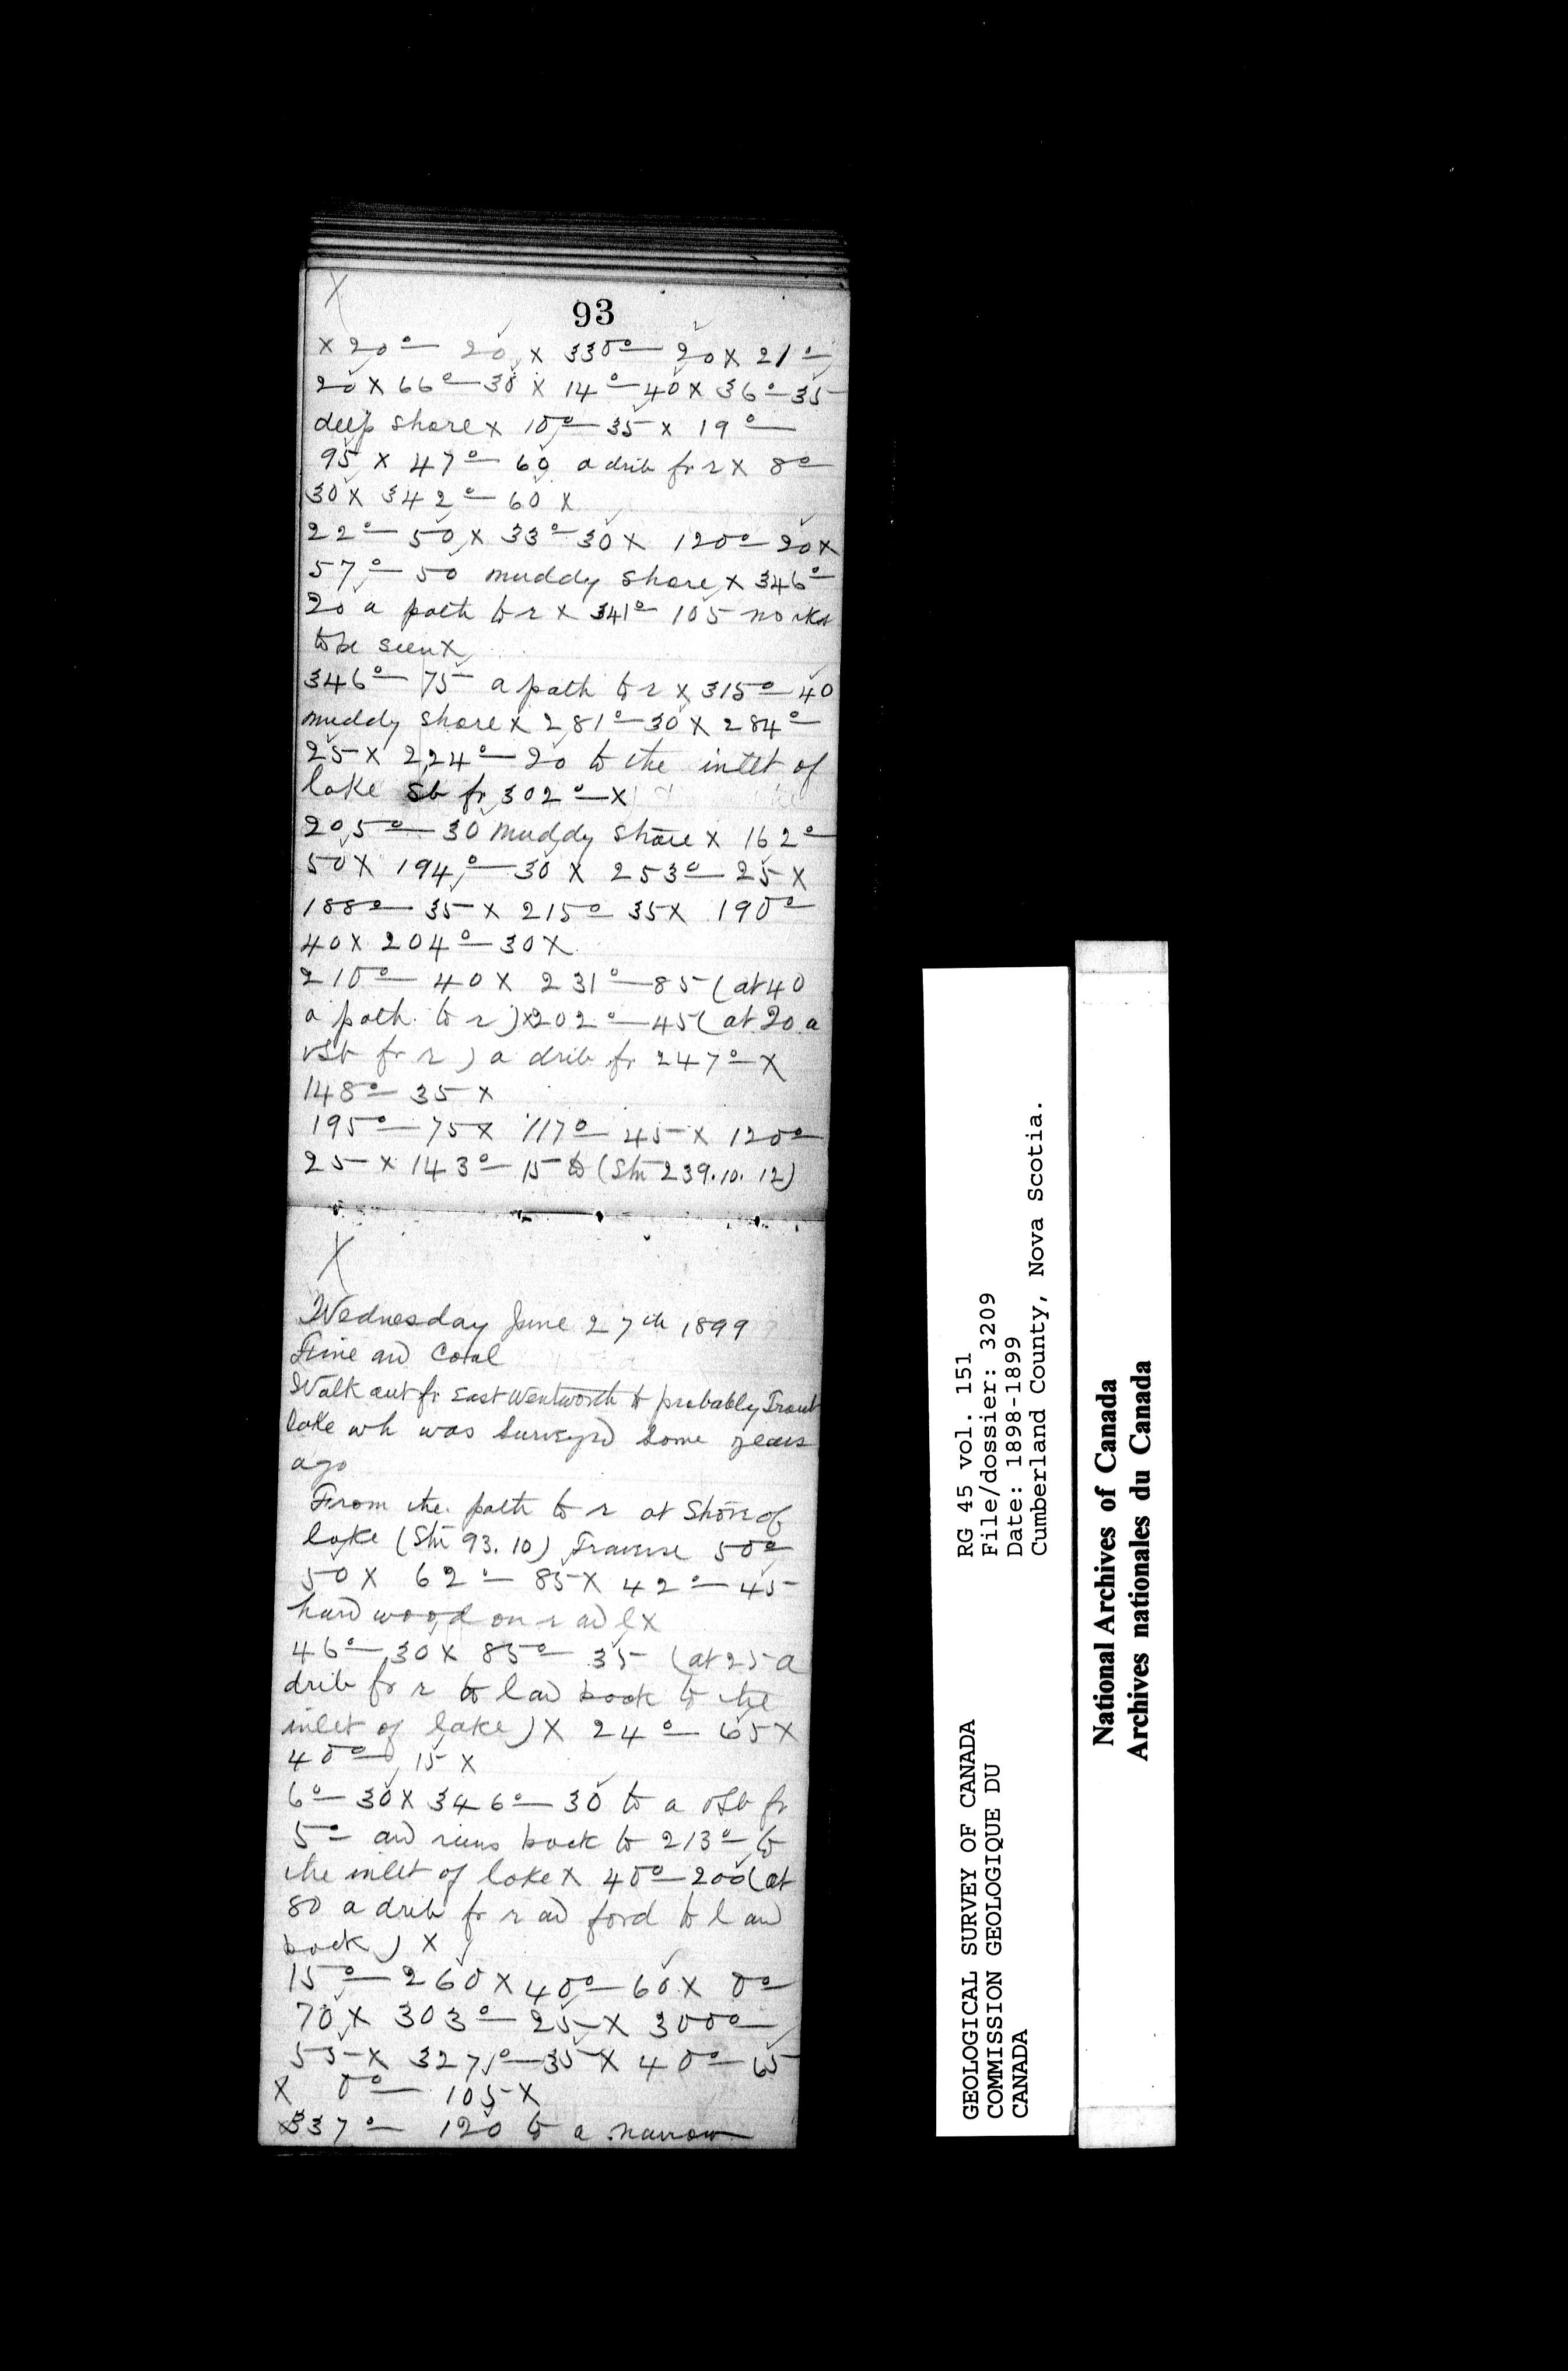 X
93
x 20° — 20 x 330° — 20 x 21° —
20 x 66° — 30 x 14° — 40 x 36° — 35
deep shore x 10° — 35 x 19° —
95 x 47° — 60 a drib fr r x 8° —
30 x 342° — 60 x
22° — 50 x 33° — 30 x 120° — 20 x
57° — 50 muddy shore x 346° —
20 a path to r x 341° — 105 no rks
to be seen x
346° — 75 a path to r x 315° — 40
muddy shore x 281° — 30 x 284° —
25 x 224° — 20 to the inlet of
lake Sb fr 302° — x
205° — 30 muddy shore x 162° —
50 x 194° — 30 x 253° — 25 x
188° — 35 x 215° — 35 x 190° —
40 x 204° — 30 x
210° — 40 x 231° — 85 (at 40
a path to r) x 202° — 45 (at 20 a
vSb fr r) a drib fr 247° — x
148° — 35 x
195° — 75 x 117° — 45 x 120° —
25 x 143° — 15 to (Stn 239.10.12)
X
Wednesday June 27th 1899
Fine and Cool
Walk out fr East Wentworth to probably Trout
lake wh was surveyed some years
ago
From the path to r at Shore of
lake (Stn 93.10) Traverse 50° —
50 x 62° — 85 x 42° — 45
hard wood on r and l x
46° — 30 x 85° — 35 (at 25 a
drib fr r to l and back to the
inlet of lake) x 24° — 65 x
40° — 15 x
6° — 30 x 346° — 30 to a vSb fr
5° — and runs back to 213° — to
the inlet of lake x 40° — 200 (at
80 a drib fr r and ford to l and
back) x
15° — 260 x 40° — 60 x 0° —
70 x 303° — 25 x 300° —
55 x 327° — 35 x 40° — 65
x 0° — 105 x
x 337° — 120 to a narrow
GEOLOGICAL SURVEY OF CANADA
COMMISSION GEOLOGIQUE DU
CANADA
RG 45 vol. 151
File/dossier: 3209
Date: 1898-1899
Cumberland County, Nova Scotia.
National Archives of Canada
Archives nationales du Canada